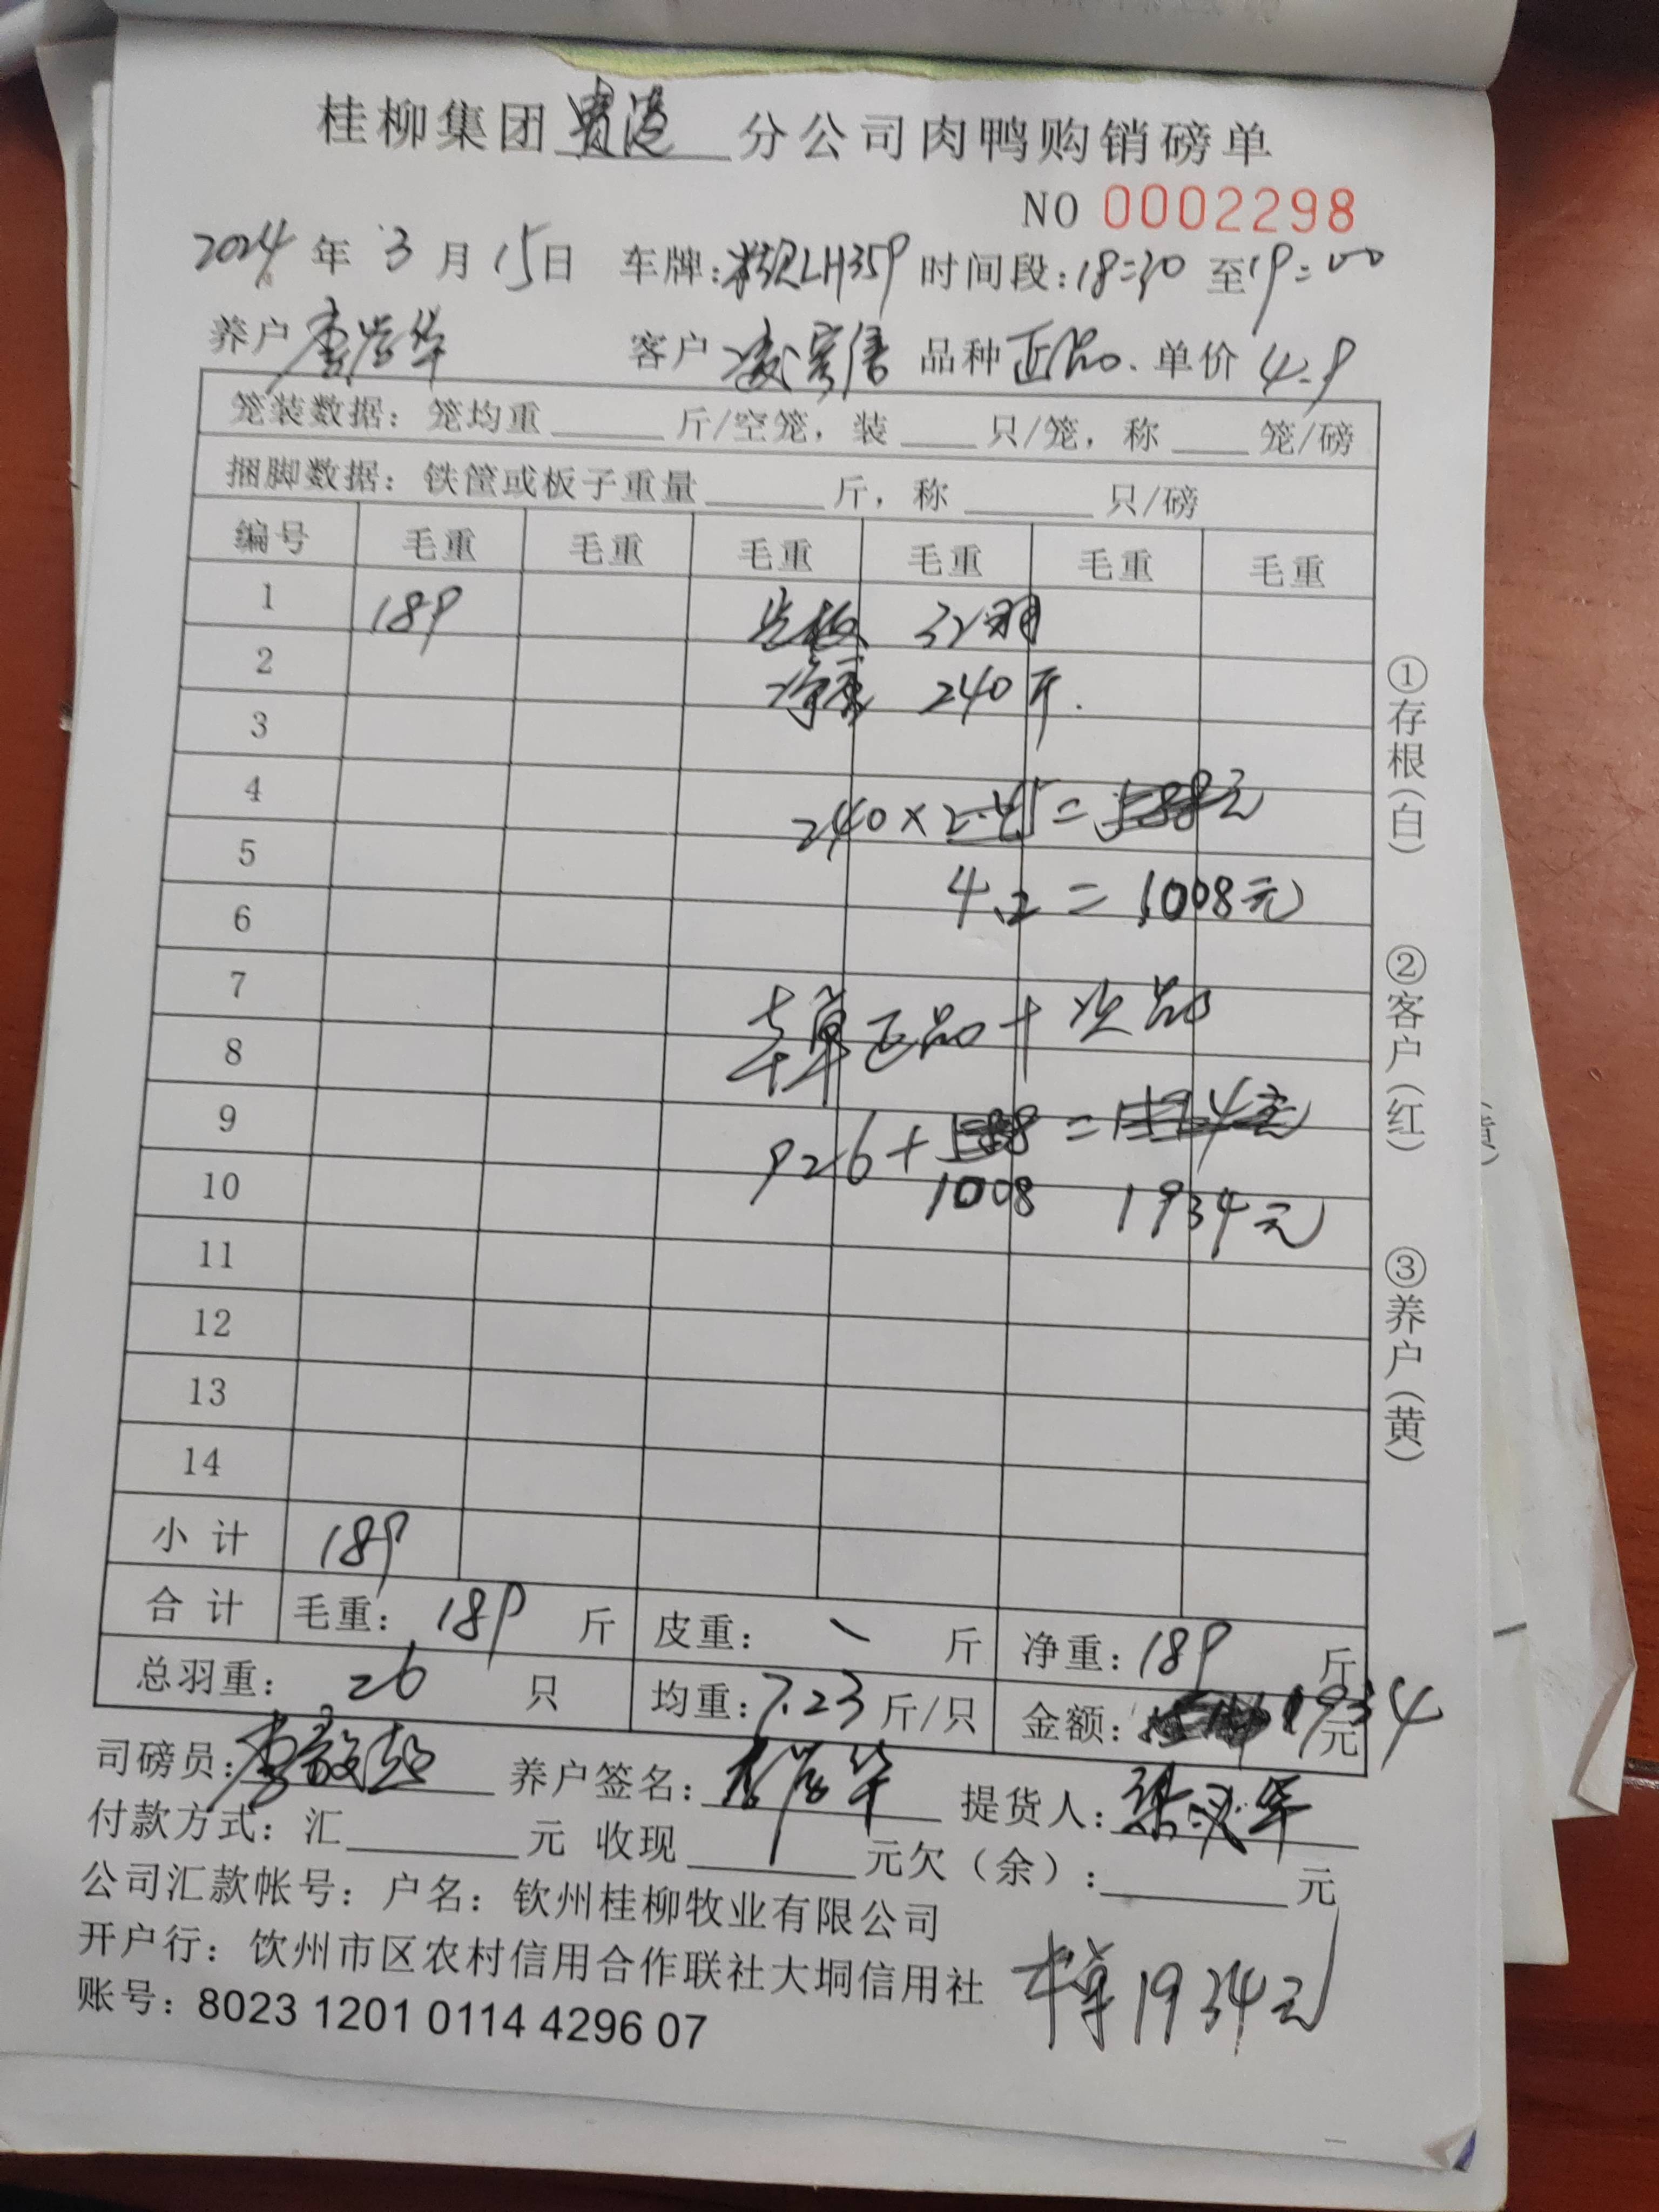 桂柳集团贵港分公司肉鸭购销磅单
NO 0002298
2024年3月15日 车牌:桂LH359 时间段:18:30至19:00
养户 客户 品种正品. 单价4.9
笼装数据: 笼均重 斤/空笼, 装 只/笼, 称 笼/磅
捆脚数据: 铁筐或板子重量 斤, 称 只/磅
编号 毛重 毛重 毛重 毛重 毛重 毛重
1 189 32羽
2 净重 240斤.
3
4 240×2.45=588元
5
6 4.2=1008元
7 本单正品+次品
8
9 926+588=
10 1008 1934元
11
12
13
14
小计 189
合计 毛重: 189 斤 皮重: 斤 净重: 189 斤
总羽重: 26 只 均重: 7.23 斤/只 金额: 1934 元
司磅员: 养户签名: 提货人:
付款方式: 汇 元 收现 元欠(余): 元
公司汇款帐号: 户名: 钦州桂柳牧业有限公司
开户行: 饮州市区农村信用合作联社大垌信用社
账号: 8023 1201 0114 4296 07
本单1934元
①存根(白) ②客户(红) ③养户(黄)